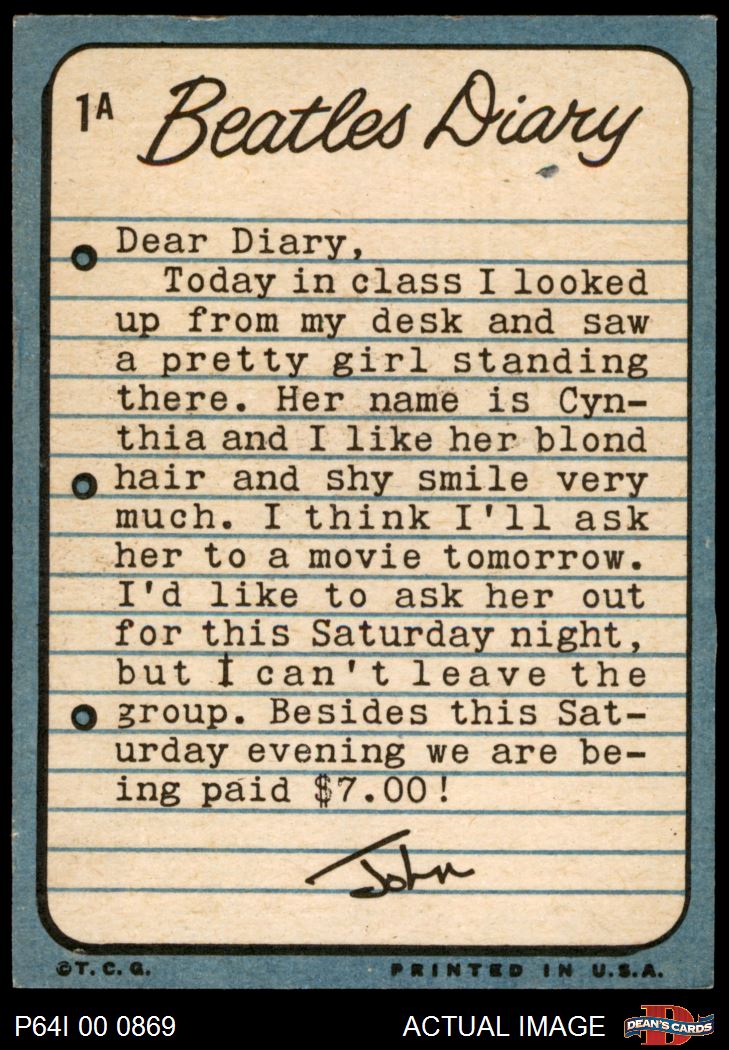 1A Beatles Diary
Dear Diary,
Today in class I looked
up from my desk and saw
a pretty girl standing
there. Her name is Cyn-
thia and I like her blond
hair and shy smile very
much. I think I'll ask
her to a movie tomorrow.
I'd like to ask her out
for this Saturday night,
but I can't leave the
group. Besides this Sat-
urday evening we are be-
ing paid $7.00!
John
©T.C.G.
PRINTED IN U.S.A.
P64I 00 0869
ACTUAL IMAGE
DEAN'S CARDS